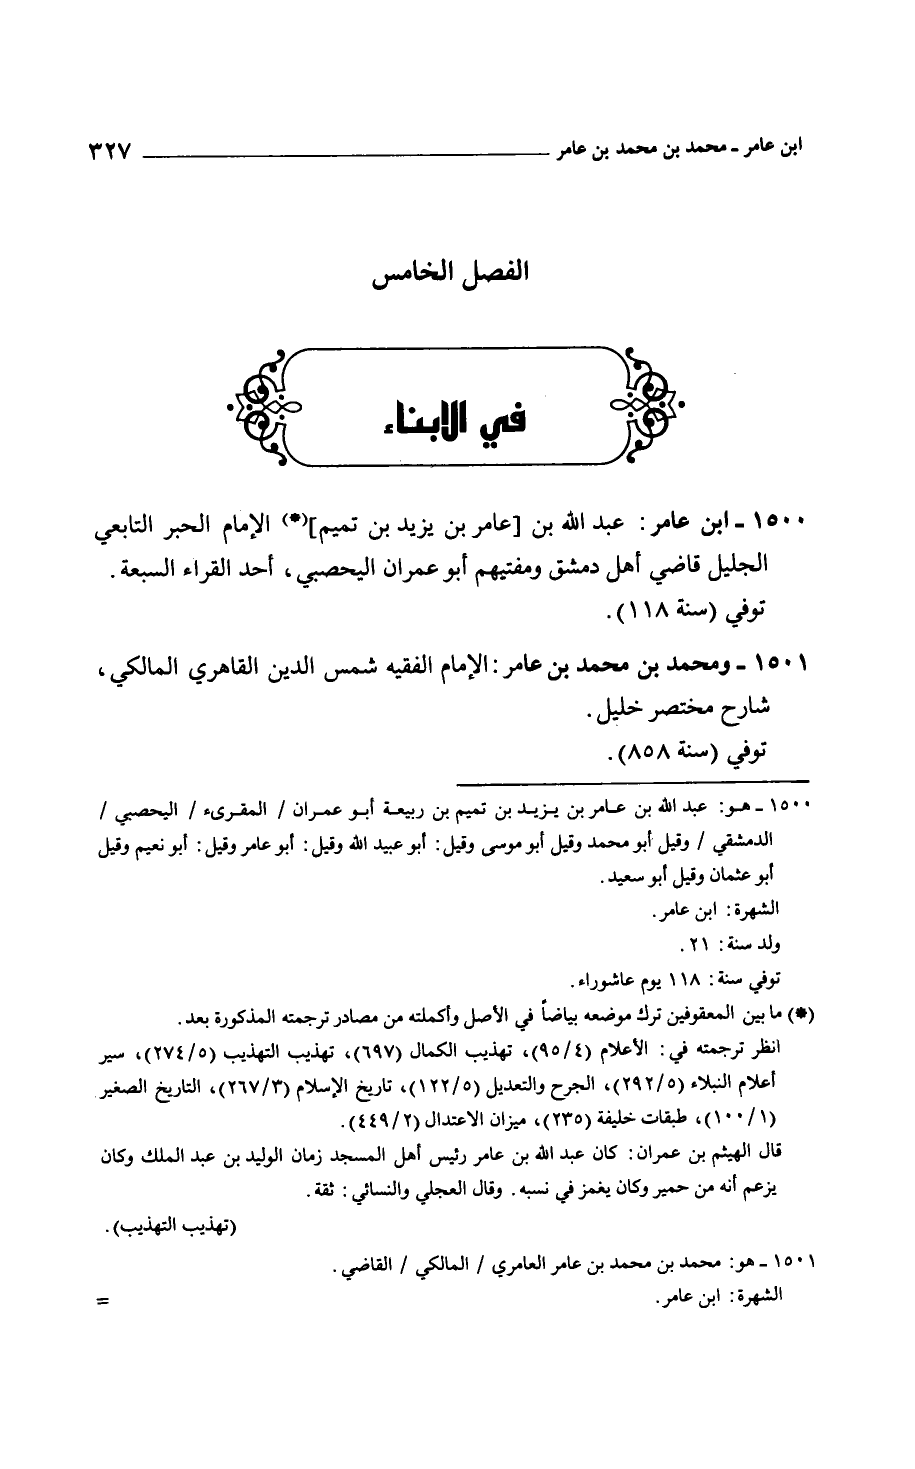 ابن عامر ـ محمد بن محمد بن عامر ٣٢٧
الفصل الخامس
في الابناء
١٥٠٠ ـ ابن عامر : عبد الله بن [عامر بن يزيد بن تميم](*) الإمام الحبر التابعي
الجليل قاضي أهل دمشق ومفتيهم أبو عمران اليحصبي، أحد القراء السبعة.
توفي (سنة ١١٨).
١٥٠١ ـ ومحمد بن محمد بن عامر : الإمام الفقيه شمس الدين القاهري المالكي،
شارح مختصر خليل.
توفي (سنة ٨٥٨).
١٥٠٠ ـ هو: عبد الله بن عامر بن يزيد بن تميم بن ربيعة أبو عمران / المقرىء / اليحصبي /
الدمشقي / وقيل أبو محمد وقيل أبو موسى وقيل: أبو عبيد الله وقيل: أبو عامر وقيل: أبو نعيم وقيل
أبو عثمان وقيل أبو سعيد.
الشهرة: ابن عامر.
ولد سنة: ٢١.
توفي سنة: ١١٨ يوم عاشوراء.
(*) ما بين المعقوفين ترك موضعه بياضاً في الأصل وأكملته من مصادر ترجمته المذكورة بعد.
انظر ترجمته في: الأعلام (٩٥/٤)، تهذيب الكمال (٦٩٧)، تهذيب التهذيب (٢٧٤/٥)، سير
أعلام النبلاء (٢٩٢/٥)، الجرح والتعديل (١٢٢/٥)، تاريخ الإسلام (٢٦٧/٣)، التاريخ الصغير
(١٠٠/١)، طبقات خليفة (٢٣٥)، ميزان الاعتدال (٤٤٩/٢).
قال الهيثم بن عمران: كان عبد الله بن عامر رئيس أهل المسجد زمان الوليد بن عبد الملك وكان
يزعم أنه من حمير وكان يغمز في نسبه. وقال العجلي والنسائي: ثقة.
(تهذيب التهذيب).
١٥٠١ ـ هو: محمد بن محمد بن عامر العامري / المالكي / القاضي.
الشهرة: ابن عامر. =